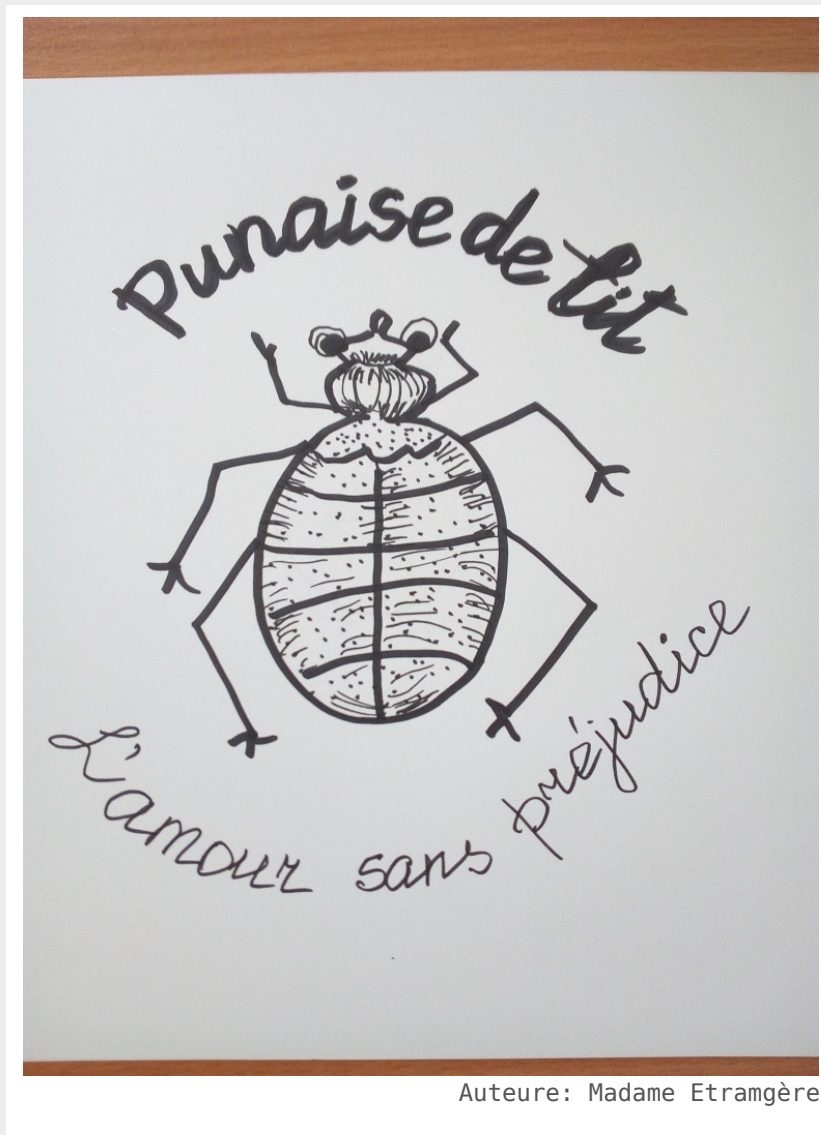 Punaise de lit
L'amour sans préjudice
Auteure: Madame Etramgère